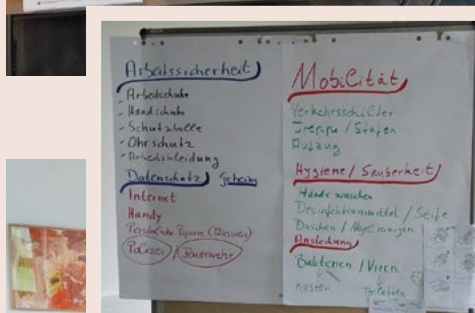 Arbeitssicherheit
- Arbeitsschuhe
- Handschuhe
- Schutzbrille
- Ohrschutz
- Arbeitskleidung
Datenschutz Geheim
Internet
Handy
Persönliche Papiere (Ausweis)
Polizei / Feuerwehr
Mobilität
Verkehrsschilder
Treppe / Stufen
Aufzug
Hygiene / Sauberkeit
Hände waschen
Desinfektionsmittel / Seife
Duschen / Nägel reinigen
Ansteckung
Bakterien / Viren
Husten Toiletten